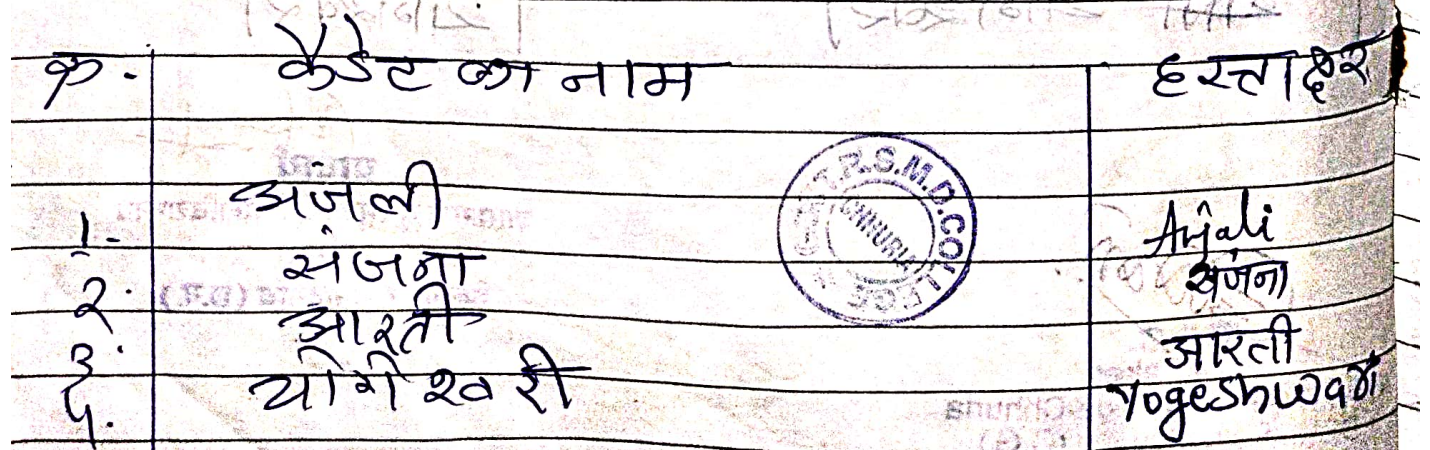 क्र. कैडेट का नाम हस्ताक्षर
1. अंजली Anjali
२. संजना संजना
३. आरती आरती
४. योगेश्वरी Yogeshwari
R.S.M.D.COLLEGE
CHHURIA